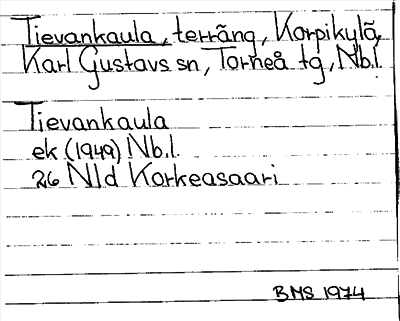 Tievankaula, terräng, Korpikylä,
Karl Gustavs sn, Torneå tg, Nb.l.
Tievankaula
ek (1949) Nb.l.
26 Nld Korkeasaari
BMS 1974